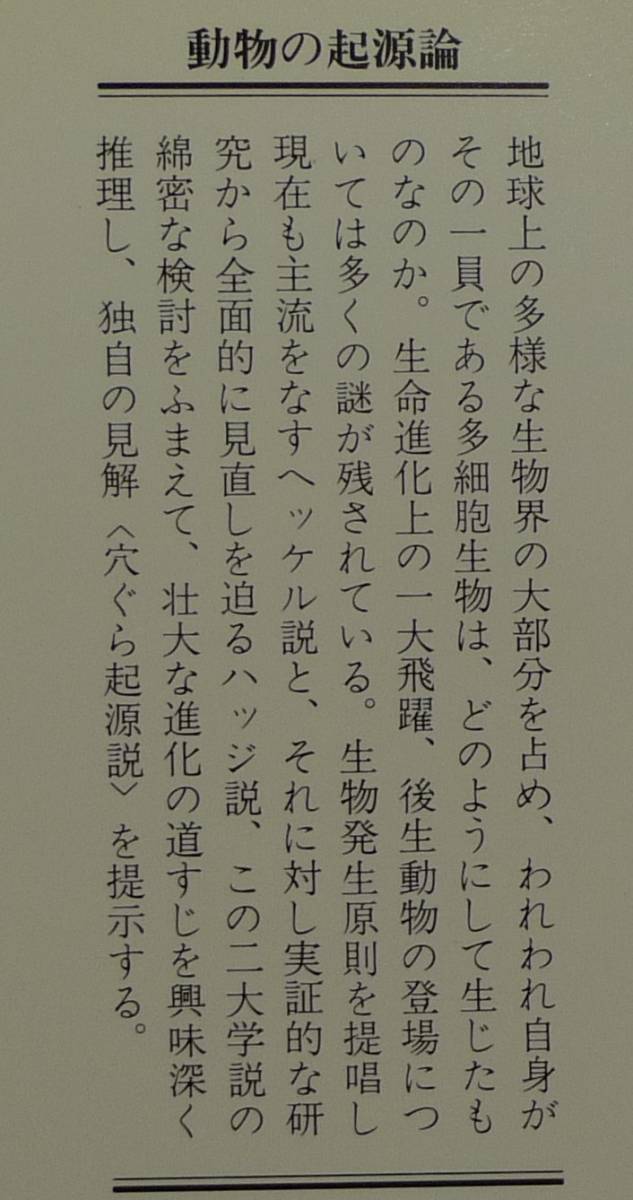 動物の起源論
地球上の多様な生物界の大部分を占め、われわれ自身が
その一員である多細胞生物は、どのようにして生じたも
のなのか。生命進化上の一大飛躍、後生動物の登場につ
いては多くの謎が残されている。生物発生原則を提唱し
現在も主流をなすヘッケル説と、それに対し実証的な研
究から全面的に見直しを迫るハッジ説、この二大学説の
綿密な検討をふまえて、壮大な進化の道すじを興味深く
推理し、独自の見解〈穴ぐら起源説〉を提示する。